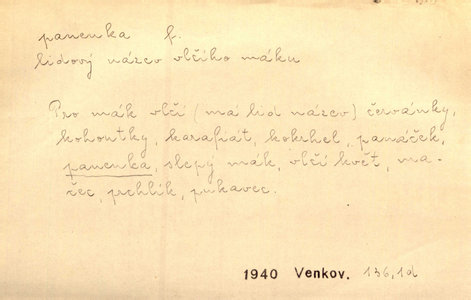 panenka f.
lidový název vlčího máku
Pro mák vlčí (má lid název) červánky,
kohoutky, karafiát, kokrhel, panáček,
panenka, slepý mák, vlčí květ, ma-
žec, prchlík, pukavec.
1940 Venkov. 136,1d